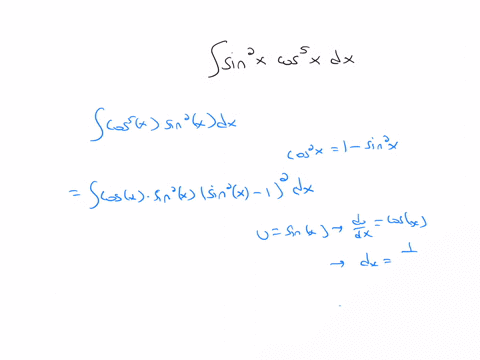 ∫sin²x cos⁵x dx
∫cos⁵(x) sin²(x) dx
cos²x = 1 - sin²x
= ∫cos(x) · sin²(x) (sin²(x) - 1)² dx
u = sin(x) → du/dx = cos(x)
→ dx = 1